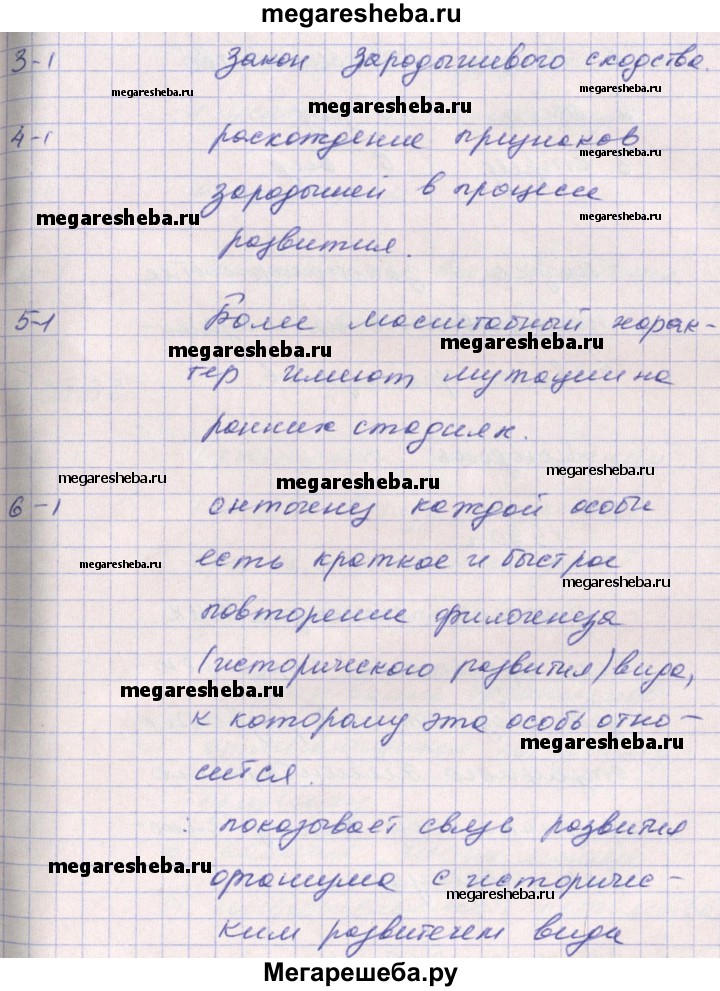 megaresheba.ru
3-1 Закон Зародышевого сходства.
megaresheba.ru
megaresheba.ru
4-1 расхождение признаков
megaresheba.ru
зародышей в процессе
megaresheba.ru
megaresheba.ru
развития.
5-1 Более масштабный харак-
megaresheba.ru
megaresheba.ru
тер имеют мутации на
ранних стадиях.
megaresheba.ru
megaresheba.ru
megaresheba.ru
6-1 онтогенез каждой особи
есть краткое и быстрое
megaresheba.ru
megaresheba.ru
повторение филогенеза
(исторического развития) вида,
megaresheba.ru
к которому эта особь отно-
megaresheba.ru
сится.
: показывает связь развития
megaresheba.ru
организма с историчес-
megaresheba.ru
ким развитием вида
Мегарешеба.ру